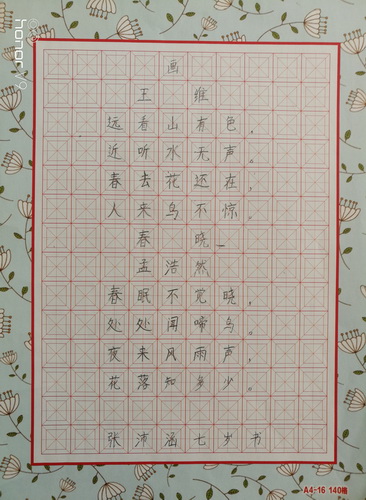 画
王 维
远看山有色，
近听水无声。
春去花还在，
人来鸟不惊。
春 晓
孟浩然
春眠不觉晓，
处处闻啼鸟。
夜来风雨声，
花落知多少。
张沛涵七岁书
A4-16 140格
honor V9